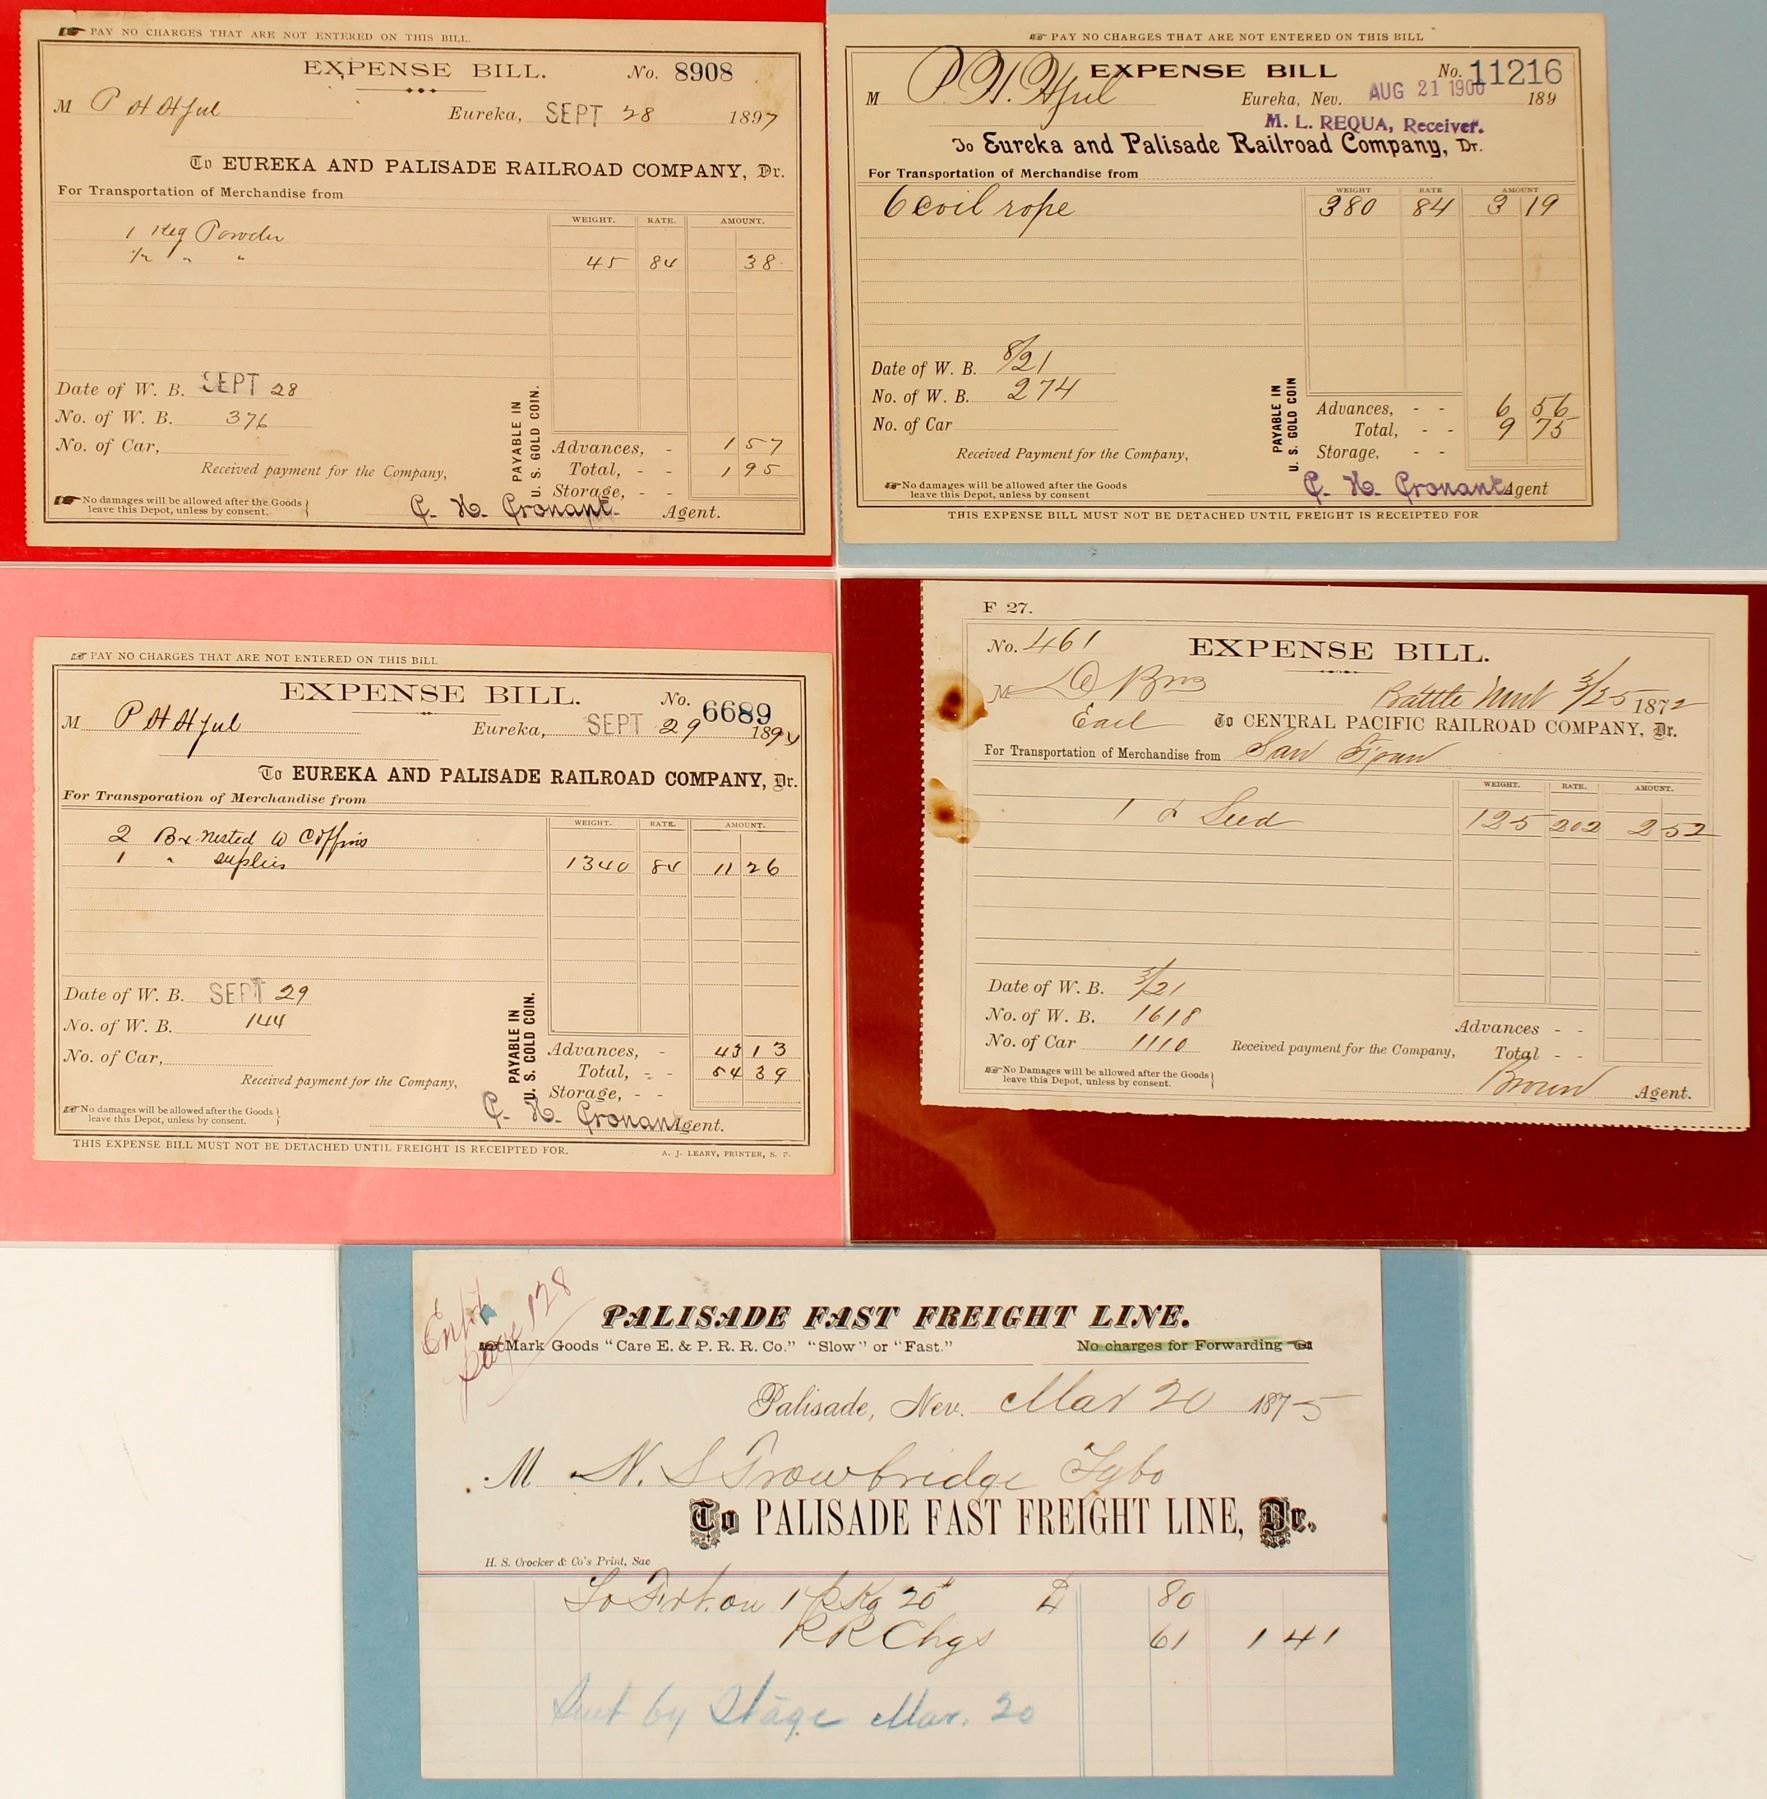 PAY NO CHARGES THAT ARE NOT ENTERED ON THIS BILL.
EXPENSE BILL.
No. 8908
M P H Hjul
Eureka, SEPT 28 1897
To EUREKA AND PALISADE RAILROAD COMPANY, Dr.
For Transportation of Merchandise from
WEIGHT. RATE. AMOUNT.
1 Keg Powder
1/2 " " 45 84 38
Date of W. B. SEPT 28
No. of W. B. 376
No. of Car,
Received payment for the Company,
PAYABLE IN
U. S. GOLD COIN.
Advances, - 1 57
Total, - - 1 95
Storage, - -
No damages will be allowed after the Goods
leave this Depot, unless by consent.
C. H. Cronant. Agent.
PAY NO CHARGES THAT ARE NOT ENTERED ON THIS BILL
EXPENSE BILL
No. 11216
M P. H. Hjul
Eureka, Nev. AUG 21 1900 189
M. L. REQUA, Receiver.
To Eureka and Palisade Railroad Company, Dr.
For Transportation of Merchandise from
WEIGHT RATE AMOUNT
6 coil rope 380 84 3 19
Date of W. B. 8/21
No. of W. B. 274
No. of Car
Received Payment for the Company,
PAYABLE IN
U. S. GOLD COIN
Advances, - - 6 56
Total, - - 9 75
Storage, - -
No damages will be allowed after the Goods
leave this Depot, unless by consent
C. H. Cronant Agent
THIS EXPENSE BILL MUST NOT BE DETACHED UNTIL FREIGHT IS RECEIPTED FOR
PAY NO CHARGES THAT ARE NOT ENTERED ON THIS BILL
EXPENSE BILL.
No. 6689
M P H Hjul
Eureka, SEPT 29 1894
To EUREKA AND PALISADE RAILROAD COMPANY, Dr.
For Transporation of Merchandise from
WEIGHT. RATE. AMOUNT.
2 Bx nested W Coffins
1 " suplies 1340 84 11 26
Date of W. B. SEPT 29
No. of W. B. 144
No. of Car,
Received payment for the Company,
PAYABLE IN
U. S. GOLD COIN.
Advances, - 43 13
Total, - - 54 39
Storage, - -
No damages will be allowed after the Goods
leave this Depot, unless by consent.
C. H. Cronant Agent.
THIS EXPENSE BILL MUST NOT BE DETACHED UNTIL FREIGHT IS RECEIPTED FOR.
A. J. LEARY, PRINTER, S. F.
F 27.
No. 461
EXPENSE BILL.
M Bros
Battle Mnt 3/25 1872
To CENTRAL PACIFIC RAILROAD COMPANY, Dr.
For Transportation of Merchandise from San Fran
WEIGHT. RATE. AMOUNT.
1 Seed 125 202 2 52
Date of W. B. 3/21
No. of W. B. 1618
No. of Car 1110
Received payment for the Company,
Advances - -
Total - -
No Damages will be allowed after the Goods
leave this Depot, unless by consent.
Brown Agent.
Page 128
PALISADE FAST FREIGHT LINE.
Mark Goods "Care E. & P. R. R. Co." "Slow" or "Fast."
No charges for Forwarding
Palisade, Nev. Mar 20 1875
M N. S Trowbridge Tybo
To PALISADE FAST FREIGHT LINE, Dr.
H. S. Crocker & Co's Print, Sac
To Frt. on 1 Pkg 20# 4 80
RR Chgs 61 1 41
Sent by Stage Mar. 20